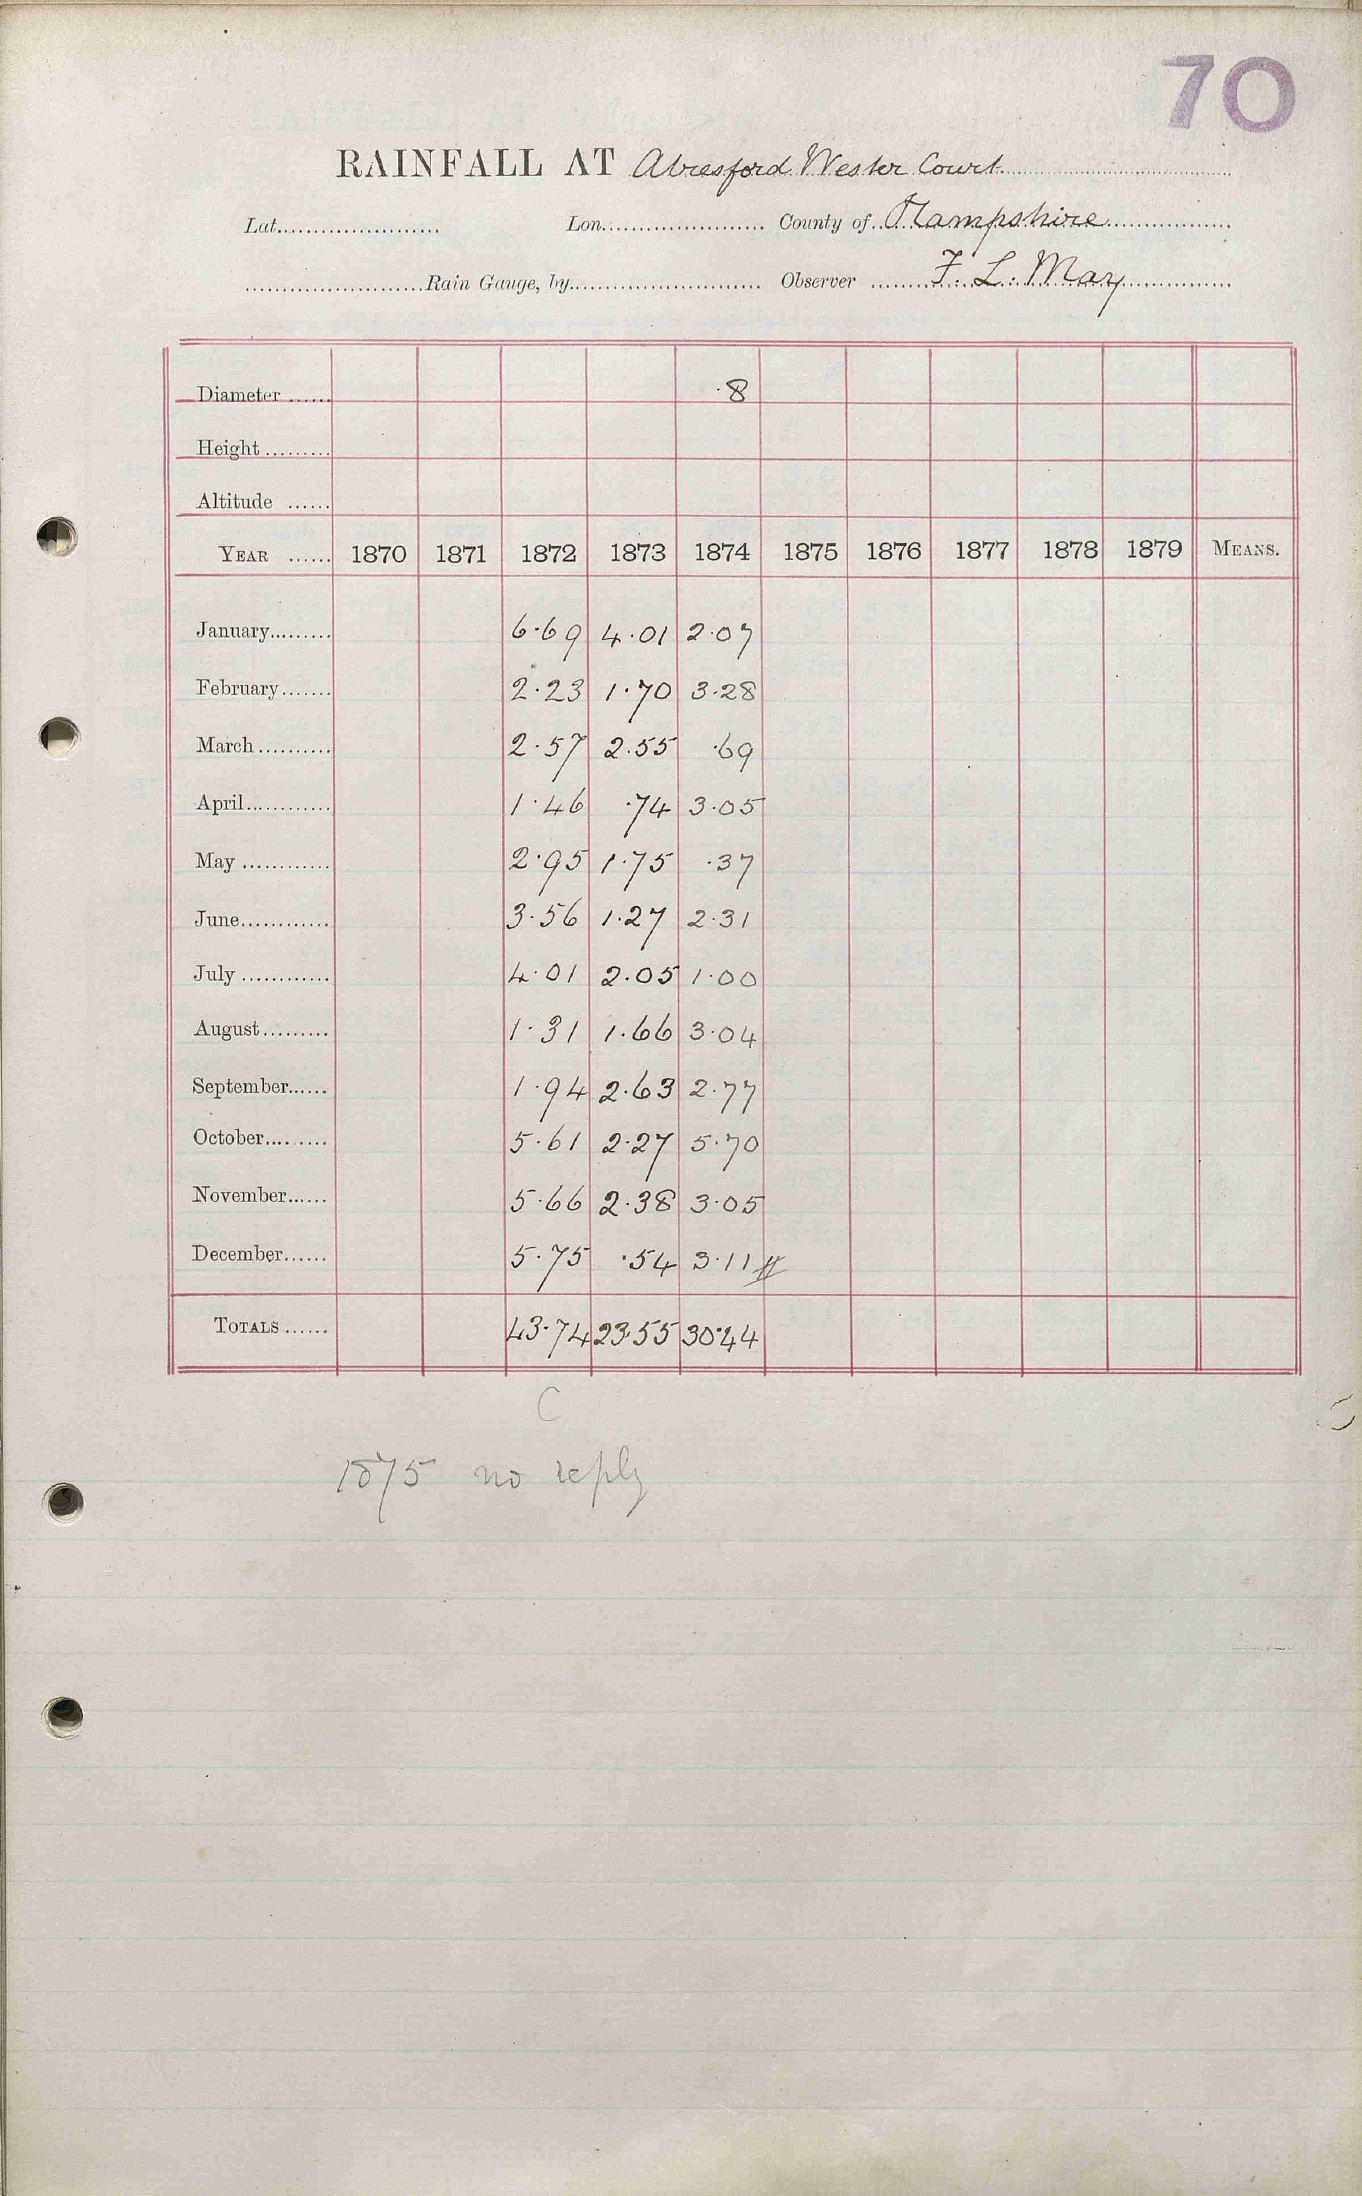 70
RAINFALL AT Alresford Wester Court
Lat. Lon. County of Hampshire
Rain Gauge, by Observer F. L. May
Diameter ...... ·8
Height
Altitude ......
YEAR ...... 1870 1871 1872 1873 1874 1875 1876 1877 1878 1879 MEANS.
January 6·69 4·01 2·07
February 2·23 1·70 3·28
March 2·57 2.55 ·69
April 1·46 ·74 3·05
May 2·95 1·75 ·37
June 3·56 1·27 2·31
July 4·01 2·05 1·00
August 1·31 1·66 3·04
September 1·94 2·63 2·77
October 5·61 2·27 5·70
November 5·66 2·38 3·05
December 5·75 ·54 3·11
TOTALS 43·74 23·55 30·44
C
1875 no reply